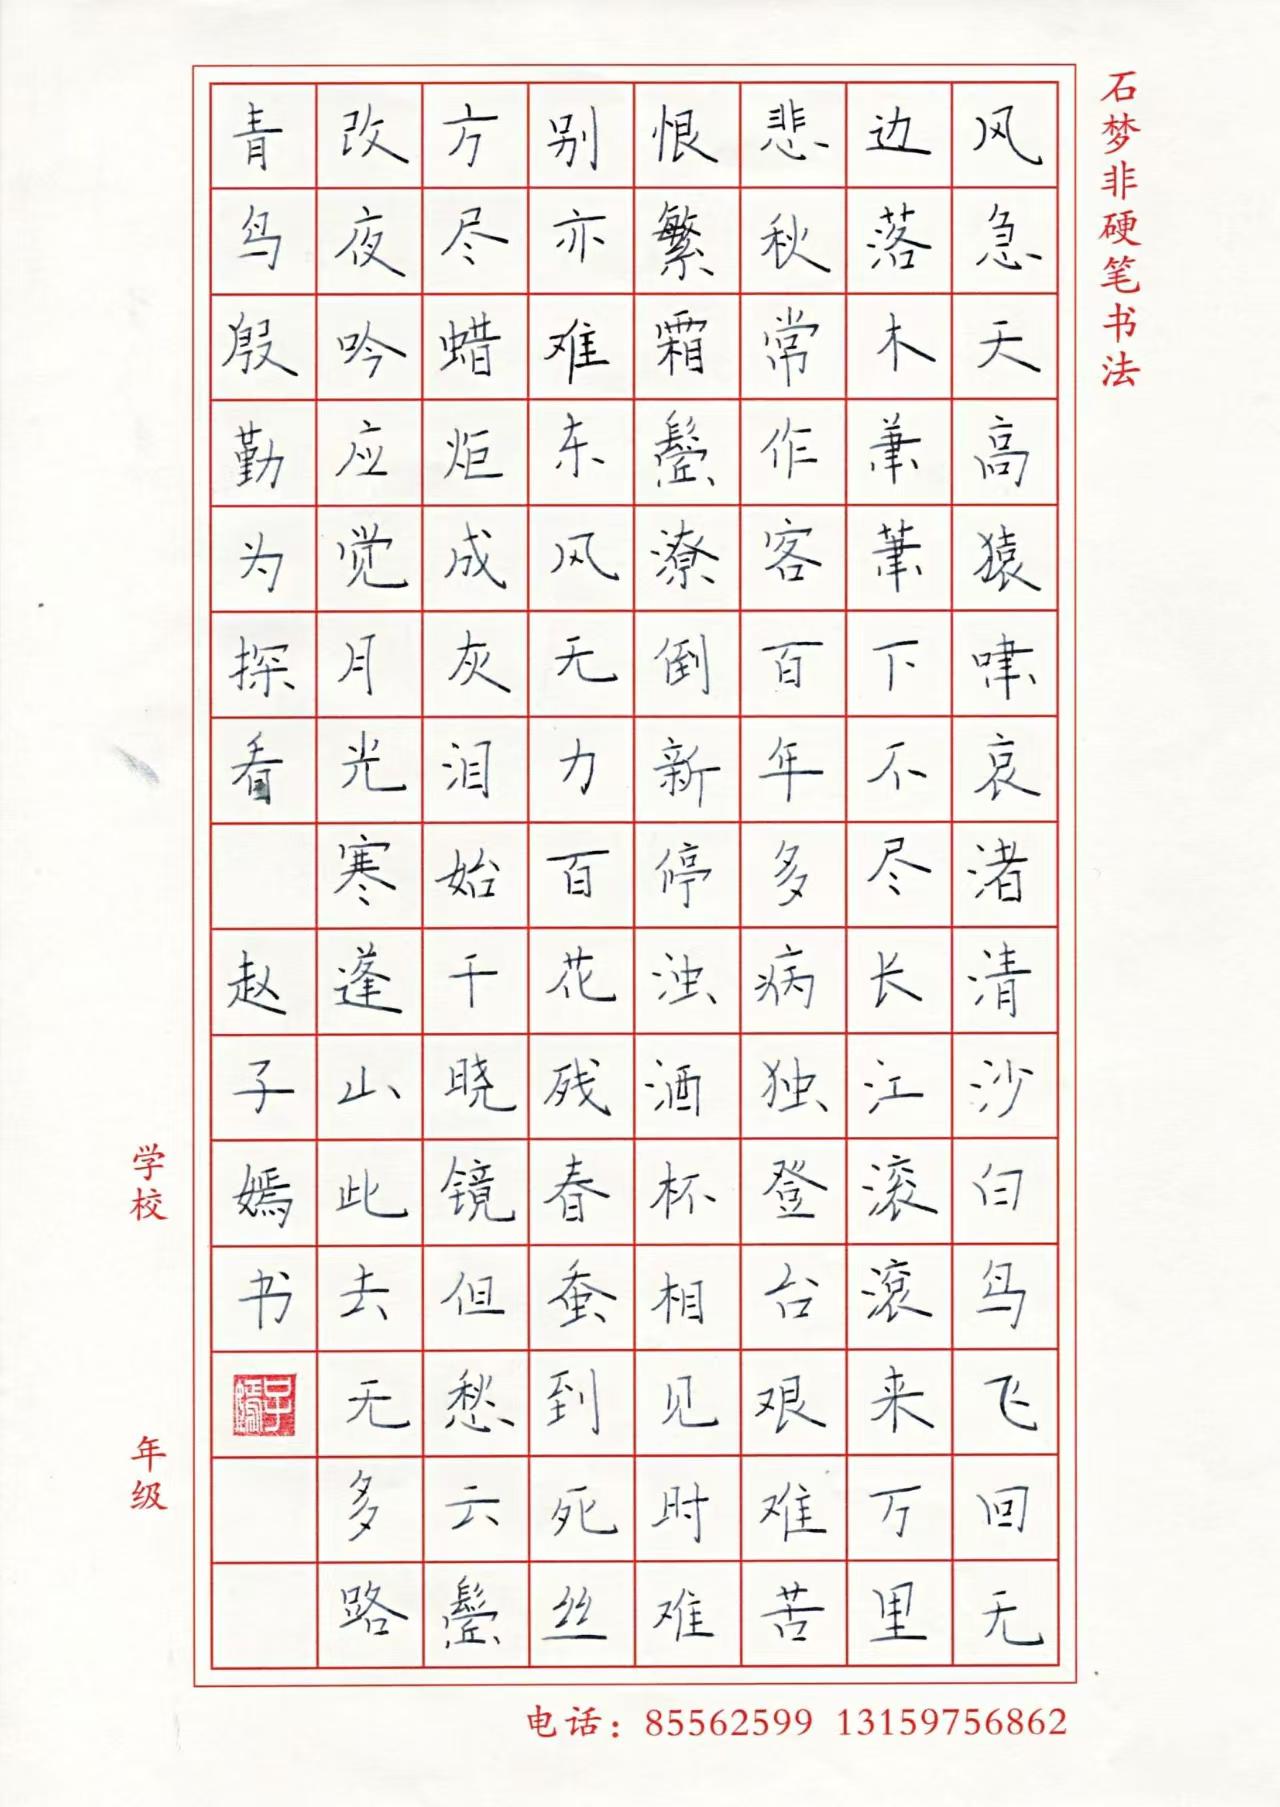 石梦非硬笔书法
风急天高猿啸哀渚清沙白鸟飞回无
边落木萧萧下不尽长江滚滚来万里
悲秋常作客百年多病独登台艰难苦
恨繁霜鬓潦倒新停浊酒杯相见时难
别亦难东风无力百花残春蚕到死丝
方尽蜡炬成灰泪始干晓镜但愁云鬓
改夜吟应觉月光寒蓬山此去无多路
青鸟殷勤为探看 赵子嫣书
子嫣
学校 年级
电话：85562599 13159756862